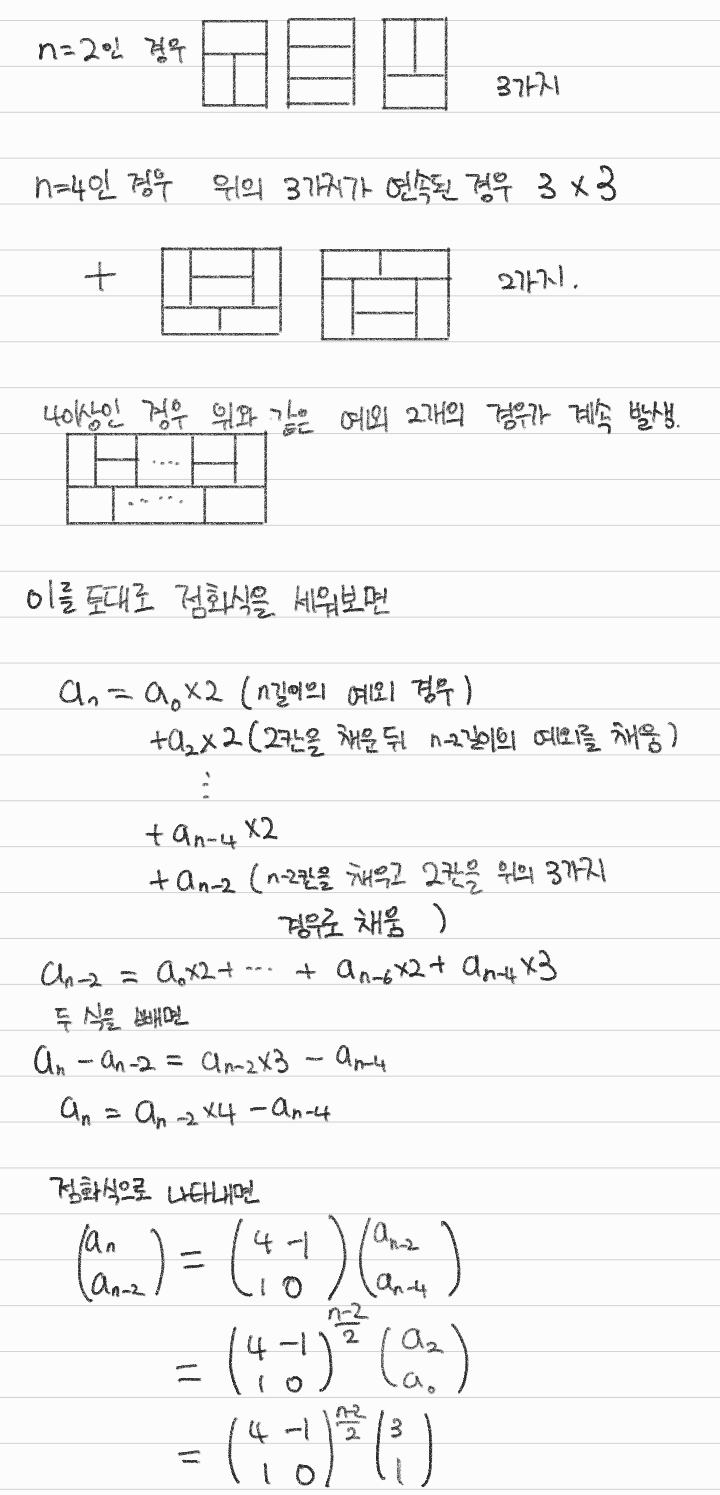 n=2인 경우
3가지
n=4인 경우 위의 3가지가 연속된 경우 3 × 3
+ 2가지.
4이상인 경우 위와 같은 예외 2개의 경우가 계속 발생.
....
.. ...
이를 토대로 점화식을 세워보면
aₙ = a₀×2 (n길이의 예외 경우)
+a₂×2 (2칸을 채운뒤 n-2길이의 예외를 채움)
⋮
+ aₙ₋₄ ×2
+ aₙ₋₂ (n-2칸을 채우고 2칸을 위의 3가지
경우로 채움 )
aₙ₋₂ = a₀×2+ ... + aₙ₋₆×2+ aₙ₋₄×3
두 식을 빼면
aₙ - aₙ₋₂ = aₙ₋₂×3 - aₙ₋₄
aₙ = aₙ₋₂×4 - aₙ₋₄
점화식으로 나타내면
(aₙ aₙ₋₂) = (4 -1 1 0)(aₙ₋₂ aₙ₋₄)
= (4 -1 1 0)^((n-2)/2) (a₂ a₀)
= (4 -1 1 0)^((n-2)/2) (3 1)